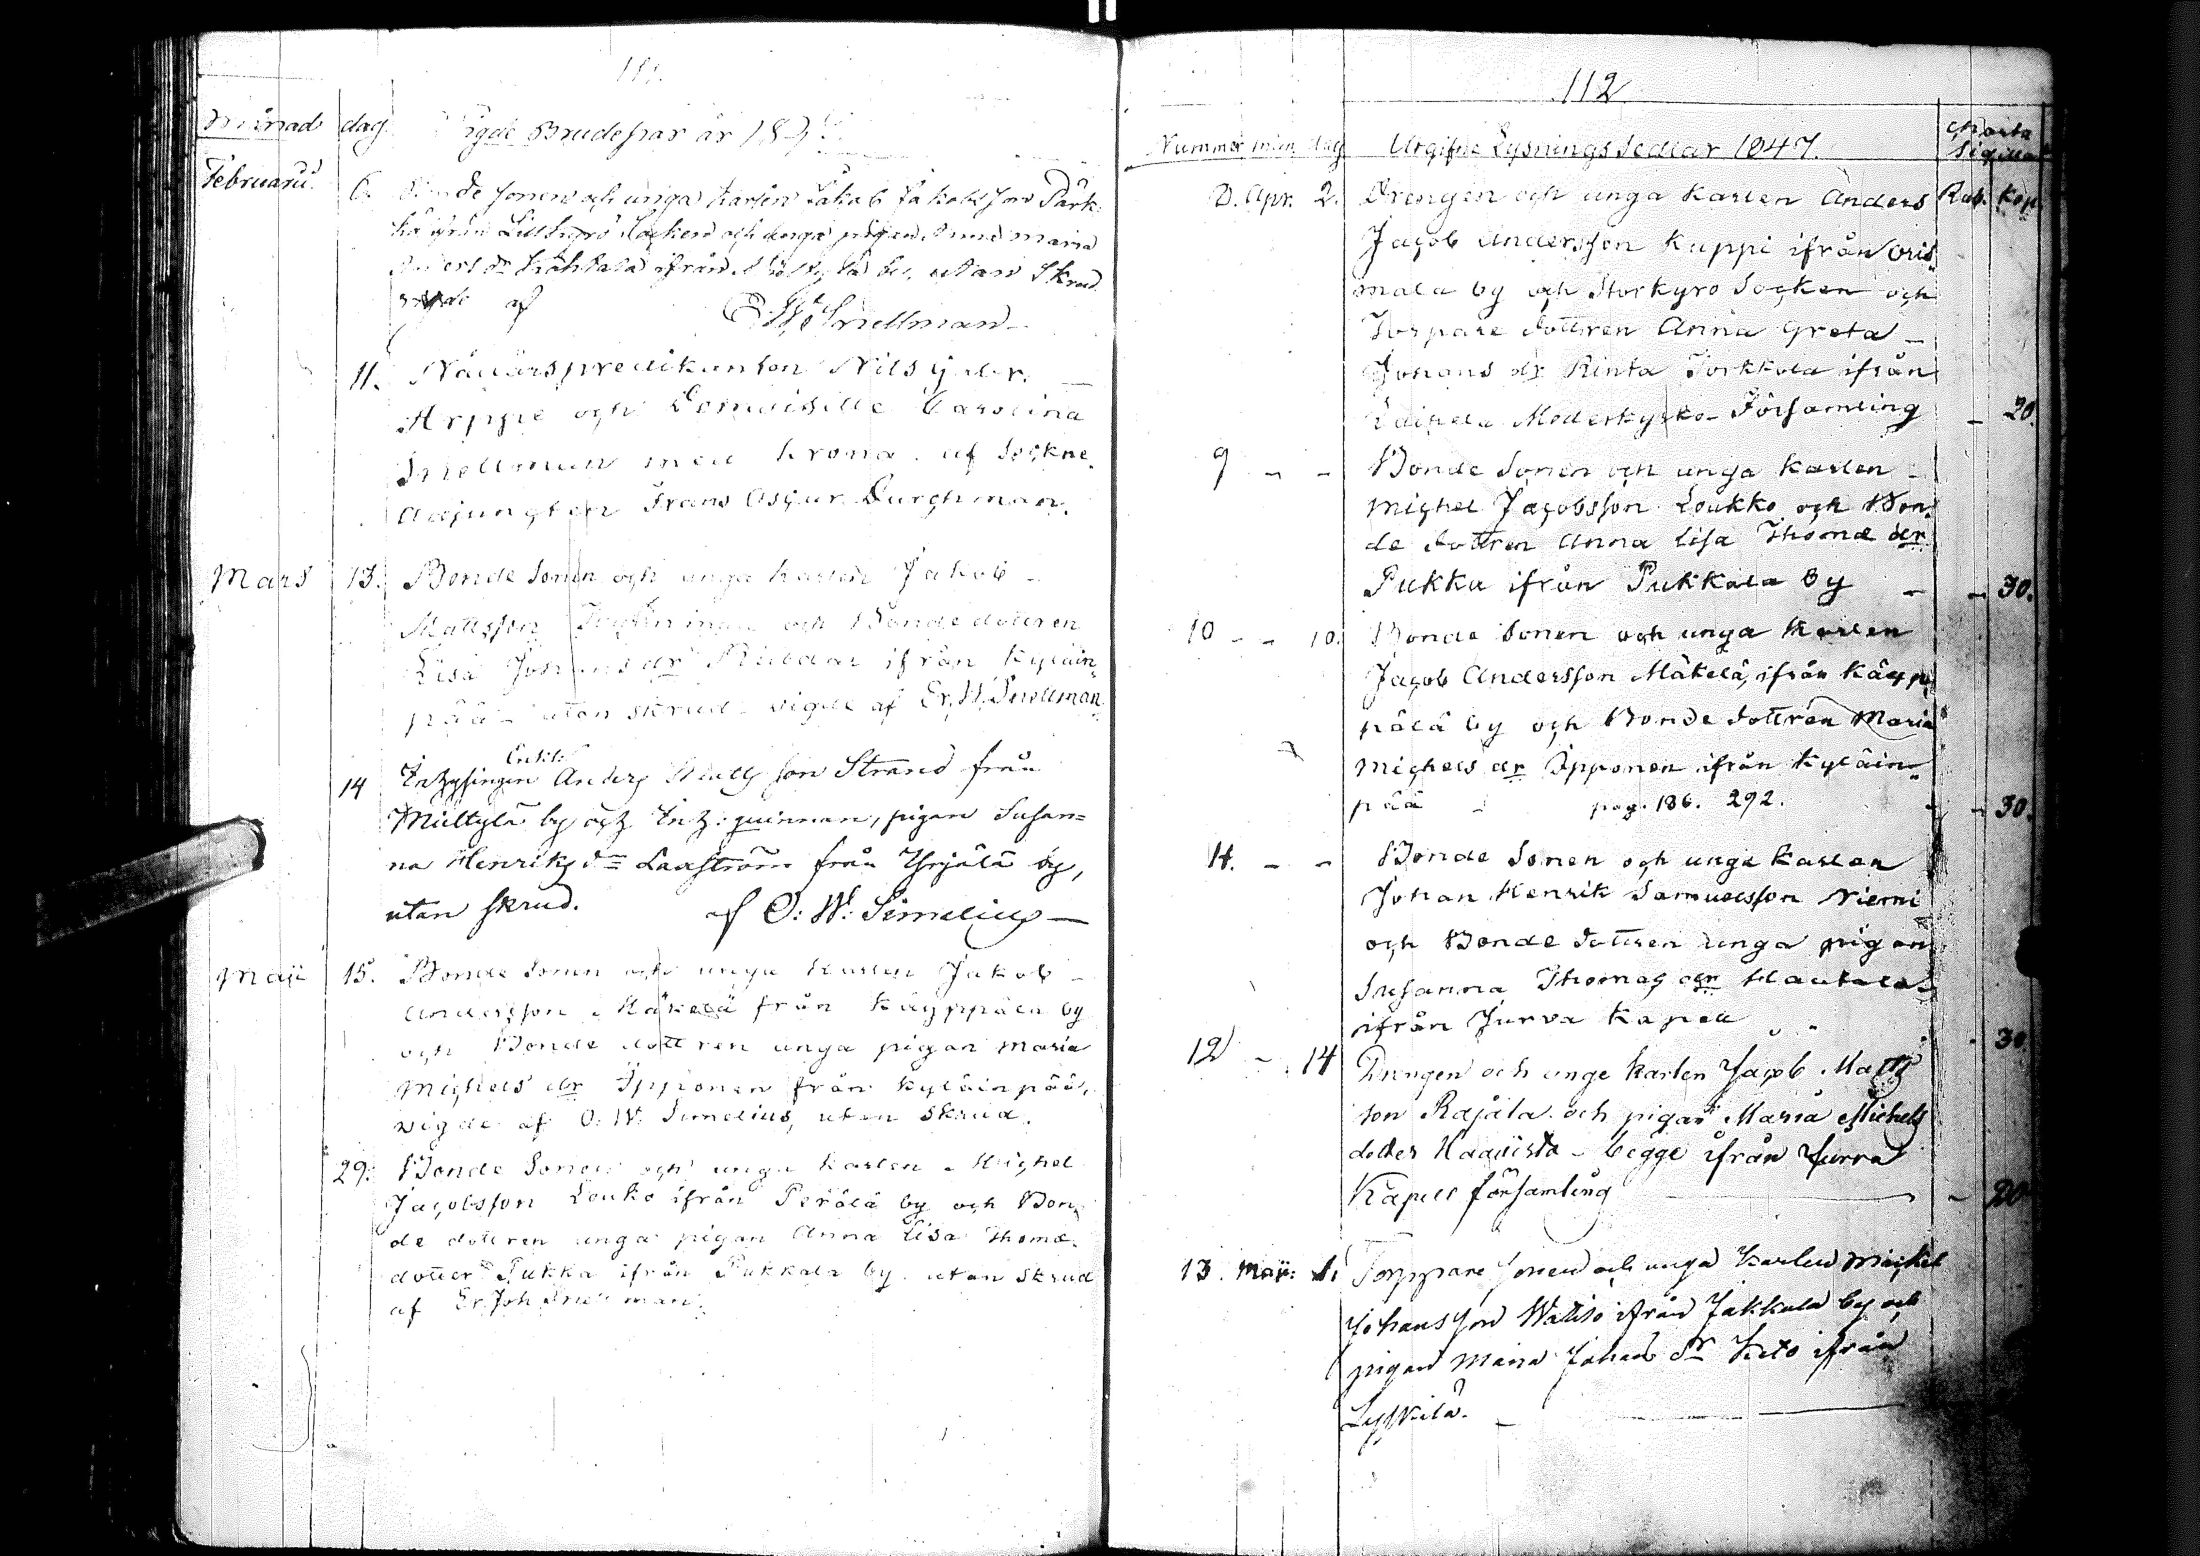 111.
månad dag Vigde Brudepar år 184
Februarii 6. Bonde sonen och unga Karlen Jakob Jakobsson Pärk-
kä ifrån Lillkyro Socken och unga pigan Anna Maria
Anders dr ifrån by, utan Skrud
vigde af E. W. Snellman
11. Nådårspredikanten Nils Gabr.
Arppe och Demoiselle Carolina
Snellman med krona af Sockne
Adjungten Frans Osgar Durchman.
Mars 13. Bonde Sonen och unga Karlen Jakob
Mattsson och Bonde dottren
Lisa Johans dr ifrån Kyläin
pää utan skrud vigde af Er. W. Snellman
14 Enkl:
Inhysingen Anders Matts son Strand från
Miltylä by och Inh: quinnan, pigan Susan=
na Henriks dr Laxström från Yrjälä by,
utan skrud. af O: W: Simelius
Maji 15. Bonde Sonen och unga Karlen Jakob
Andersson Mäkelä från Käyppälä by
och Bonde dottren unga pigan Maria
Mighels dr Ipponen från Kyläinpää,
vigde af O. W. Simelius, utan Skrud.
29. Bonde Sonen och unga Karlen Mighel
Jacobsson Louko ifrån Perälä by och Bon
de dottren unga pigan Anna Lisa Thomæ
dotter Pukka ifrån Pukkala by utan Skrud
af Er. Joh Snellman.
112
Nummer mån dag Utgifne Lysnings Sedlar 1847. Charta Sigillat
8. Apr. 2. Drengen och unga Karlen Anders Rub. Kop.
Jacob Andersson Kuppi ifrån Oris
mala by och Storkyro Socken och
Torpare dottren Anna Greta
Johans dr Rinta Torkkola ifrån
Laihela Moderkyrko Församling - 20.
9 - - Bonde Sonen och unga Karlen
Mighel Jacobsson Loukko och Bon
de dottren Anna Lisa Thomæ dr
Pukka ifrån Pukkala By - - 30.
10 - - 10. Bonde Sonen och unga Karlen
Jacob Andersson Mäkelä, ifrån Käyp
pälä by och Bonde dottren Maria
Mighels dr Ipponen ifrån Kyläin
pää pag. 186. 292. - 30.
11. - - Bonde Sonen och unga Karlen
Johan Henrik Samuelsson Niemi
och Bonde dottren unga pigan
Susanna Thomas dr Hautala
ifrån Jurva Kapell - 30
12 - 14 Drengen och unge Karlen Jacob Matts
son Rajala och pigan Maria Michels
dotter Haavisto - begge ifrån Jurva
Kapell församling - 20
13. Maji: 1. Torppare sonen och unga Karlen Michel
Johansson Watiso ifrån Jakkula by och
pigan Maria Johans dr Keto ifrån